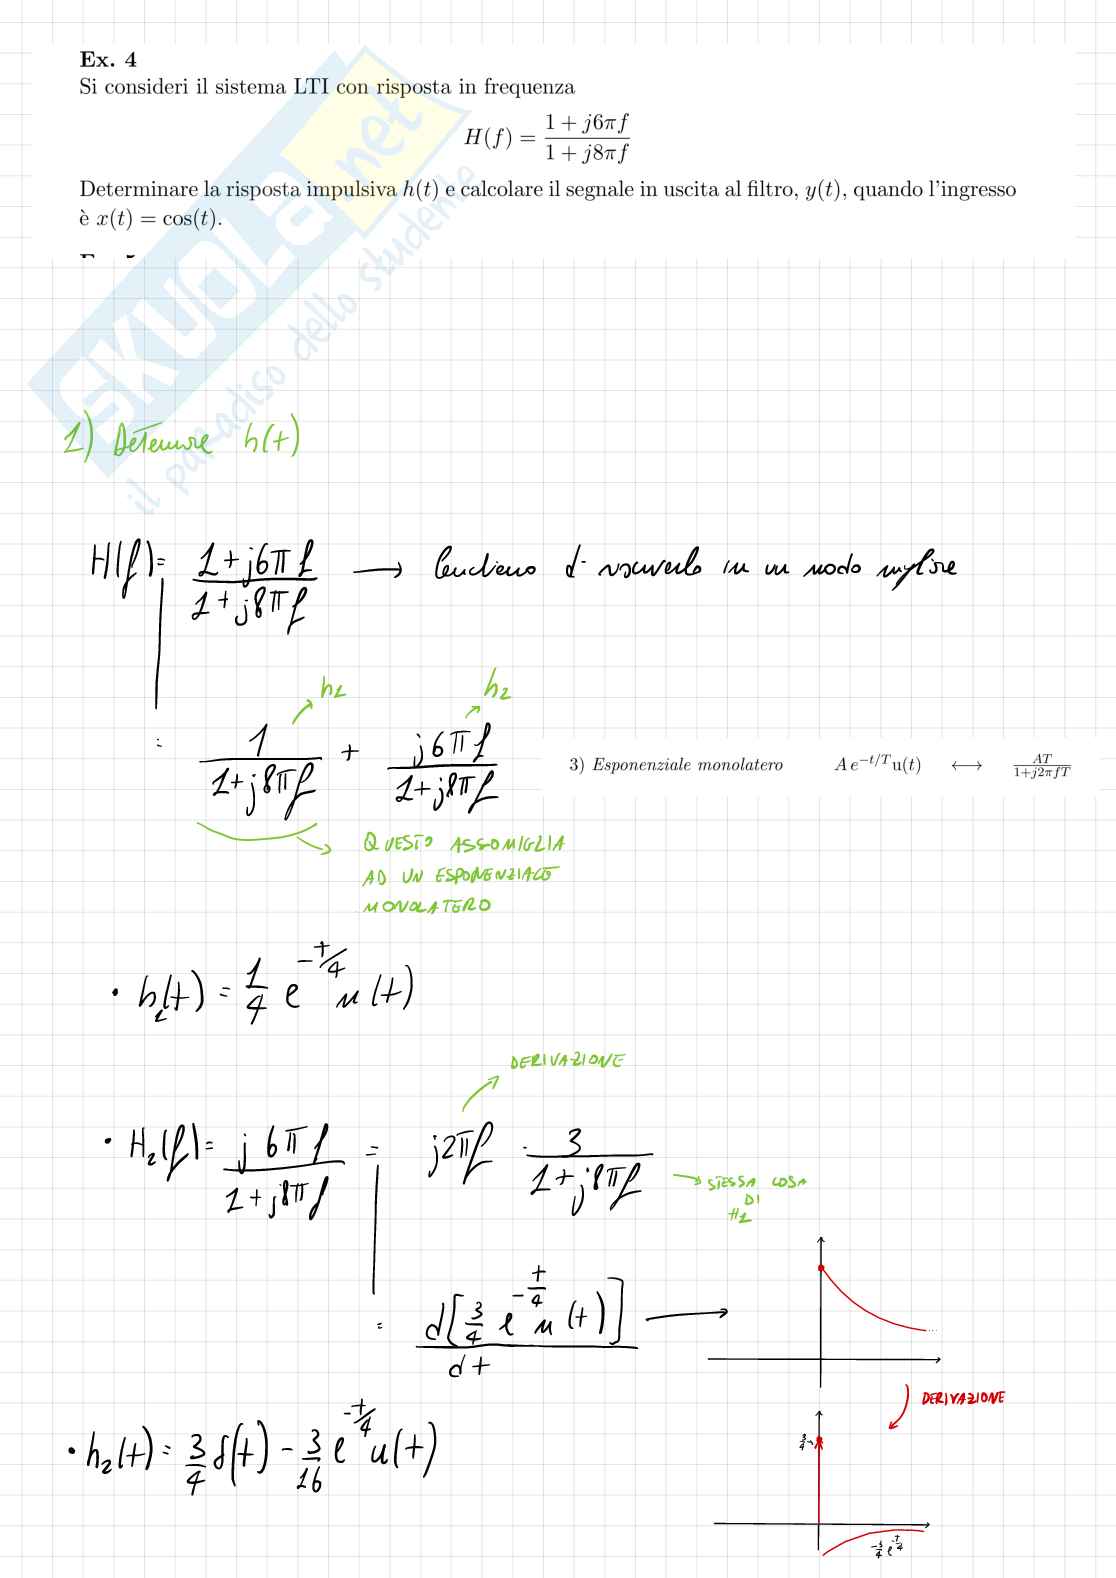 Ex. 4
Si consideri il sistema LTI con risposta in frequenza
H(f) = \frac{1 + j6πf}{1 + j8πf}
Determinare la risposta impulsiva h(t) e calcolare il segnale in uscita al filtro, y(t), quando l'ingresso
è x(t) = cos(t).
SKUOLA.net
il paradiso dello studente
1) h(t)
H(f) = \frac{1+j6πf}{1+j8πf} → in un modo migliore
h1 h2
= \frac{1}{1+j8πf} + \frac{j6πf}{1+j8πf}
3) Esponenziale monolatero A e^{-t/T} u(t) ⟷ \frac{AT}{1+j2πfT}
QUESTO ASSOMIGLIA
AD UN ESPONENZIALE
MONOLATERO
• h1(t) = \frac{1}{4} e^{-t/4} u(t)
DERIVAZIONE
• H2(f) = \frac{j6πf}{1+j8πf} = j2πf · \frac{3}{1+j8πf}
→ STESSA COSA
DI
H1
= \frac{d[\frac{3}{4} e^{-\frac{t}{4}} u(t)]}{dt} →
DERIVAZIONE
• h2(t) = \frac{3}{4} δ(t) - \frac{3}{16} e^{-t/4} u(t)
\frac{3}{4}
-\frac{3}{4} e^{-\frac{t}{4}}